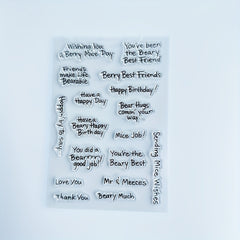 Wishing You
a Berry Nice Day
You've been
the Beary
Best Friend
Friends
make Life
Bearable
Berry Best Friends
Happy Birthday!
Have a
Happy Day
Bear Hugs
comin' your
way
Happy try to say
Have a
Beary Happy
Birthday
Mice Job!
Sending Mice Wishes
You did a
Bearrrry
good job!
You're the
Beary Best
Love You
Mr & Meeces
Thank You
Beary Much